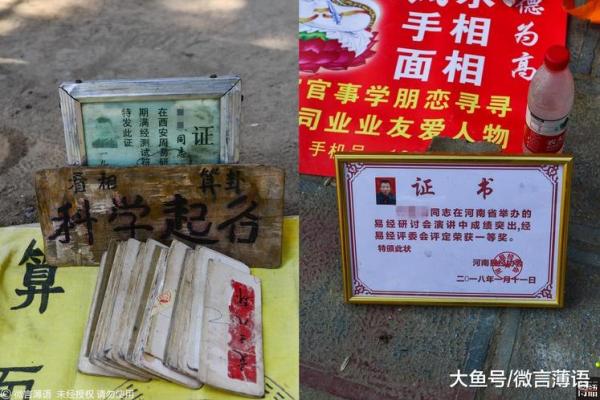 证
同志
在西安周易研
期满经测试符
特发此证
看相 算卦
科学起名
算
@微言薄语 未经授权 请勿使用
风水
手相
面相
德为高
官事学朋恋寻寻
司业业友爱人物
手机号
证书
同志在河南省举办的
易经研讨会演讲中成绩突出,经
易经评委会评定荣获一等奖。
特颁此状
河南
二○一八年一月十一日
大鱼号/@微言薄语